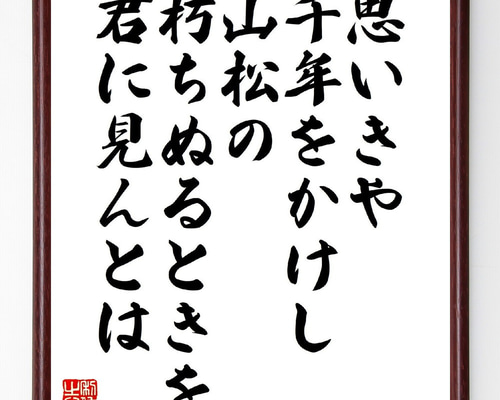 思いきや
千年をかけし
山松の
朽ちぬるときを
君に見んとは